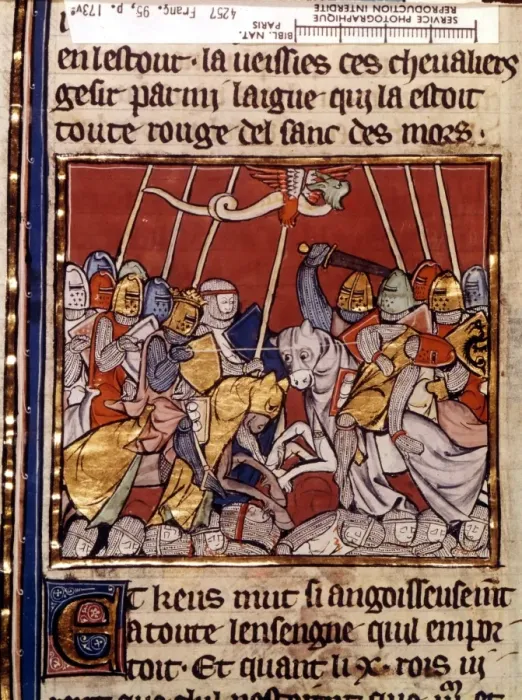 SERVICE PHOTOGRAPHIQUE
REPRODUCTION INTERDITE
BIBL. NAT.
PARIS
4257 Franç. 95, p. 173v°
en lestour · la ueissies ces cheualiers
gesir parmi laigue qui la estoit
toute rouge del sanc des mors ·
Et keus mut si angoisseusemt
a toute lensengne quil empor
toit · Et quant li x · rois